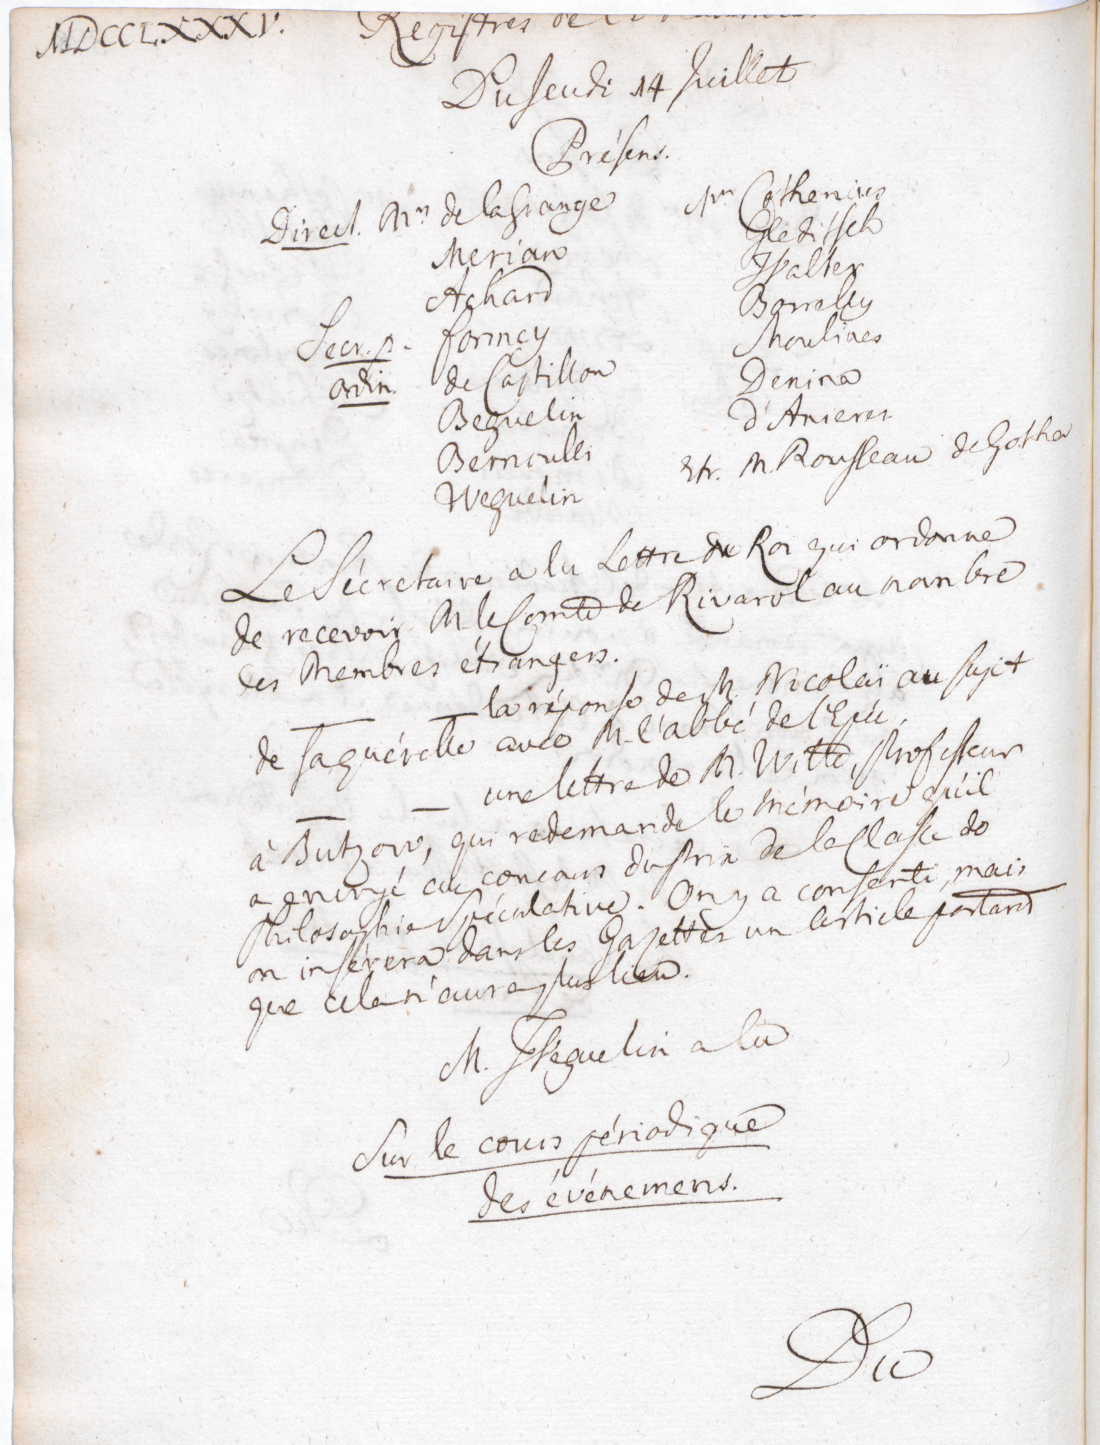 MDCCLXXXV. Registres de l'Académie
Du Jeudi 14 Juillet
Présens.
Direct. Mrs de la Grange
Merian
Achard
Secr. p. formey
ordin. de Castillon
Beguelin
Bernoulli
Weguelin
Mrs Cothenius
Gleditsch
Walter
Borrelly
Moulines
Denina
d'Anieres
Etr. M. Rousseau de Gotha
Le Sécretaire a lu Lettre du Roi qui ordonne
de recevoir M. le Comte de Rivarol au nombre
des Membres étrangers.
— — la réponse de M. Nicolaï au sujet
de sa quérelle avec M. l'abbé de l'Epée.
— — une lettre de M. Witte, Professeur
à Butzow, qui redemande le mémoire qu'il
a envoyé au concours du Prix de la Classe de
Philosophie Spéculative. On y a consenti, mais
on insérera dans les Gazettes un Article portant
que cela n'aura plus lieu.
M. Wéguelin a lu
Sur le cours périodique
des événemens.
Du